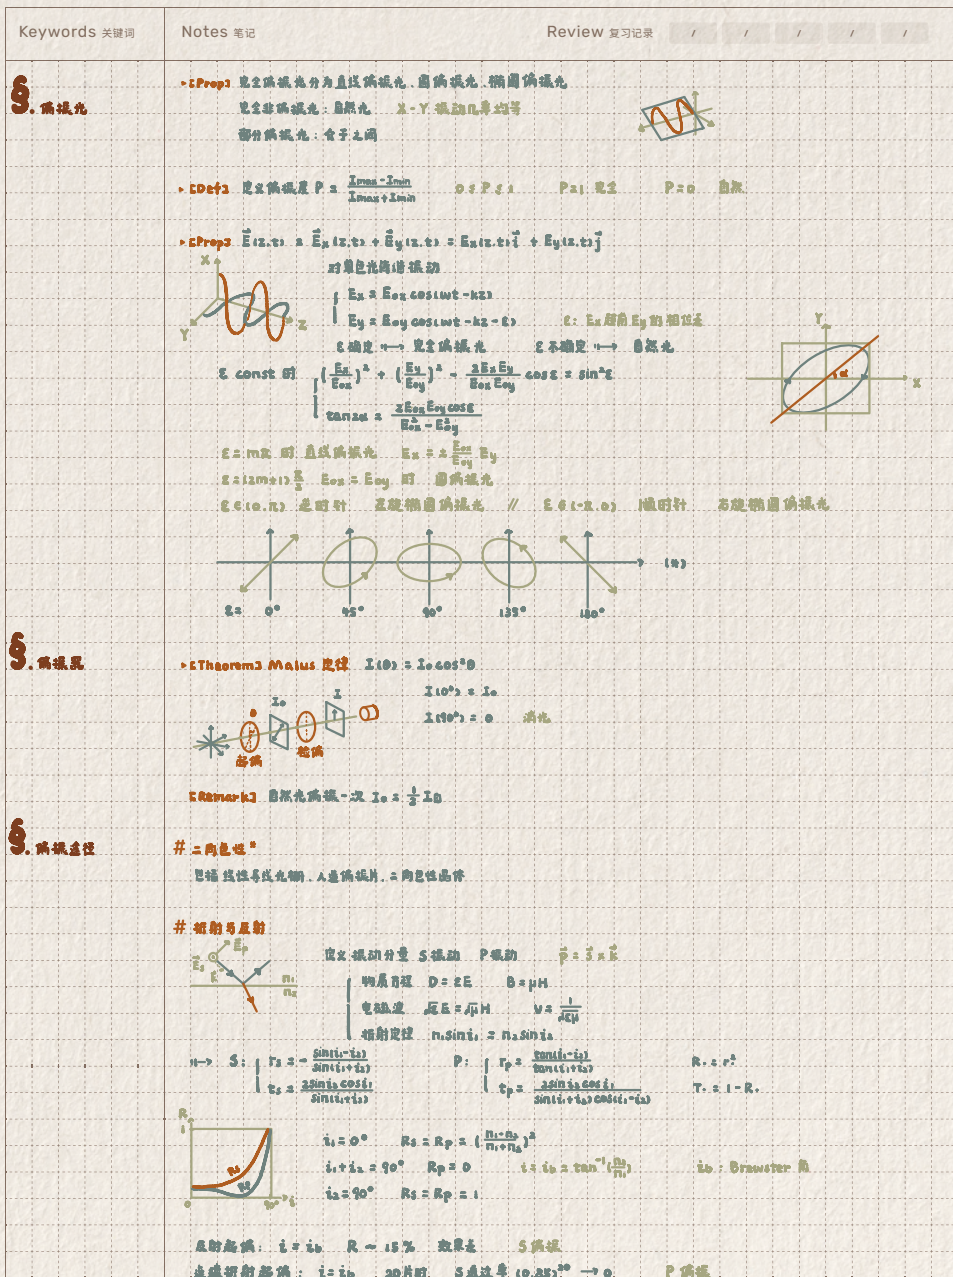 Keywords 关键词 Notes 笔记 Review 复习记录 / / / / /
§. 偏振光
▸[Prop] 完全偏振光分为直线偏振光、圆偏振光、椭圆偏振光
完全非偏振光:自然光 X-Y 振动几率均等
部分偏振光:介于之间
▸[Def] 定义偏振度 P = (Imax-Imin)/(Imax+Imin) 0≤P≤1 P=1 完全 P=0 自然
▸[Prop] E⃗(z,t) = E⃗x(z,t) + E⃗y(z,t) = Ex(z,t)i⃗ + Ey(z,t)j⃗
X Y Z
对单色光简谐振动
Ex = Eox cos(wt-kz)
Ey = Eoy cos(wt-kz-ε) ε: Ex超前Ey的相位差
ε确定 ⟼ 完全偏振光 ε不确定 ⟼ 自然光
Y X α
ε const 时 (Ex/Eox)² + (Ey/Eoy)² - 2ExEy/EoxEoy cosε = sin²ε
tan2α = 2EoxEoycosε/(Eox²-Eoy²)
ε=mπ 时 直线偏振光 Ex = ± Eox/Eoy Ey
ε=(2m+1)π/2 Eox = Eoy 时 圆偏振光
ε∈(0,π) 逆时针 左旋椭圆偏振光 // ε∈(-π,0) 顺时针 右旋椭圆偏振光
ε= 0° 45° 90° 135° 180°
§. 偏振器
▸[Theorem] Malus 定律 I(θ) = I₀cos²θ
I(0°) = I₀
I(90°) = 0 消光
θ I₀ I
起偏 检偏
[Remark] 自然光偏振一次 I₀ = 1/2 I自
§. 偏振途径
# 二向色性*
包括线性导线光栅、人造偏振片、二向色性晶体
# 折射与反射
E⃗s E⃗p k⃗ n₁ n₂
定义振动分量 S振动 P振动 p⃗ = s⃗ × k⃗
物质方程 D = εE B = μH
电磁波 √εE = √μH v = 1/√εμ
折射定律 n₁sini₁ = n₂sini₂
⟼ S: rs = - sin(i₁-i₂)/sin(i₁+i₂) P: rp = tan(i₁-i₂)/tan(i₁+i₂) R. = r.²
ts = 2sini₂cosi₁/sin(i₁+i₂) tp = 2sini₂cosi₁/sin(i₁+i₂)cos(i₁-i₂) T. = 1-R.
R 1 Rs Rp 0 90° i
i₁=0° Rs=Rp = ((n₁-n₂)/(n₁+n₂))²
i₁+i₂=90° Rp=0 i=ib=tan⁻¹(n₂/n₁) ib: Brewster 角
i₂=90° Rs=Rp=1
反射起偏: i=ib R~15% 效果差 S偏振
i=ib 20片时 S透过率 (0.85)²⁰ → 0 P偏振